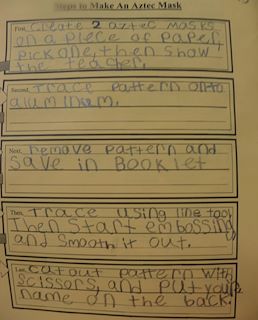 Steps to Make An Aztec Mask
First, Create 2 aztec masks
on a piece of paper,
pick one, then show
the teacher.
Second, Trace pattern onto
aluminum.
Next, Remove pattern and
save in Booklet
Then, Trace using line tool
Then start embossing
and smooth it out.
Last, cut out pattern with
scissors, and put your
name on the back.